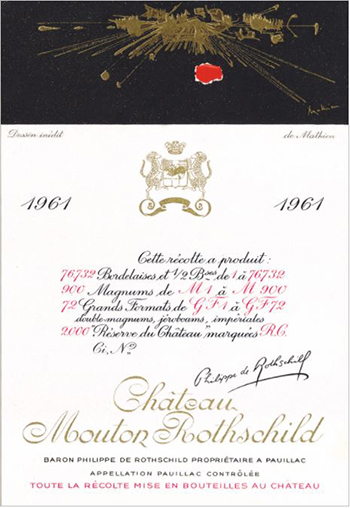 Mathieu
Dessin inédit de Mathieu
1961 1961
Cette récolte a produit:
76732 Bordelaises et 1/2 Bses de 1 à 76732
900 Magnums de M 1 à M 900
72 Grands Formats de G F 1 à G F 72
double-magnums, jeroboams, impériales
2000 "Réserve du Château" marquées R.C.
Ci, No
Philippe de Rothschild
Château
Mouton Rothschild
BARON PHILIPPE DE ROTHSCHILD PROPRIÉTAIRE A PAUILLAC
APPELLATION PAUILLAC CONTRÔLÉE
TOUTE LA RÉCOLTE MISE EN BOUTEILLES AU CHÂTEAU